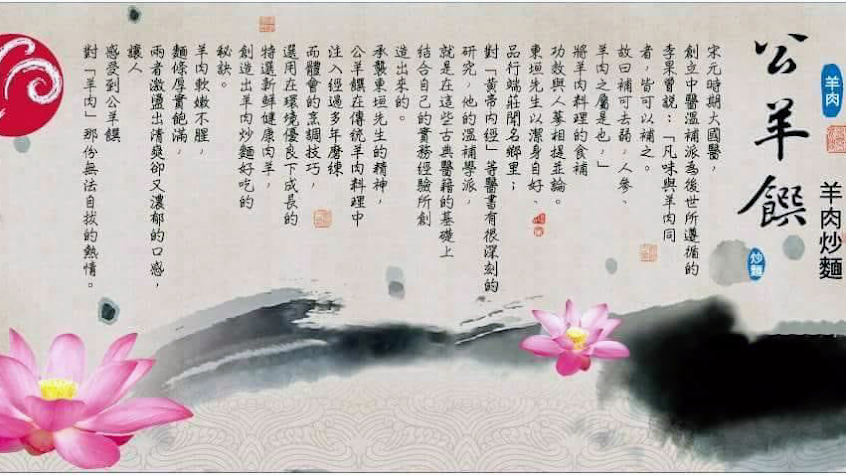 羊肉炒麵
羊肉
公羊饌
炒麵
宋元時期大國醫，
創立中醫溫補派為後世所遵循的
李杲曾說：「凡味與羊肉同
者，皆可以補之。
故曰補可去弱，人參、
羊肉之屬是也，」
將羊肉料理的食補
功效與人蔘相提並論。
東垣先生以潔身自好、
品行端莊聞名鄉里；
對「黃帝內經」等醫書有很深刻的
研究，他的溫補學派，
就是在這些古典醫籍的基礎上
結合自己的實務經驗所創
造出來的。
承襲東垣先生的精神，
公羊饌在傳統羊肉料理中
注入經過多年磨練
而體會的烹調技巧，
選用在環境優良下成長的
特選新鮮健康肉羊，
創造出羊肉炒麵好吃的
秘訣。
羊肉軟嫩不腥，
麵條厚實飽滿，
兩者激盪出清爽卻又濃郁的口感，
讓人
感受到公羊饌
對「羊肉」那份無法自拔的熱情。